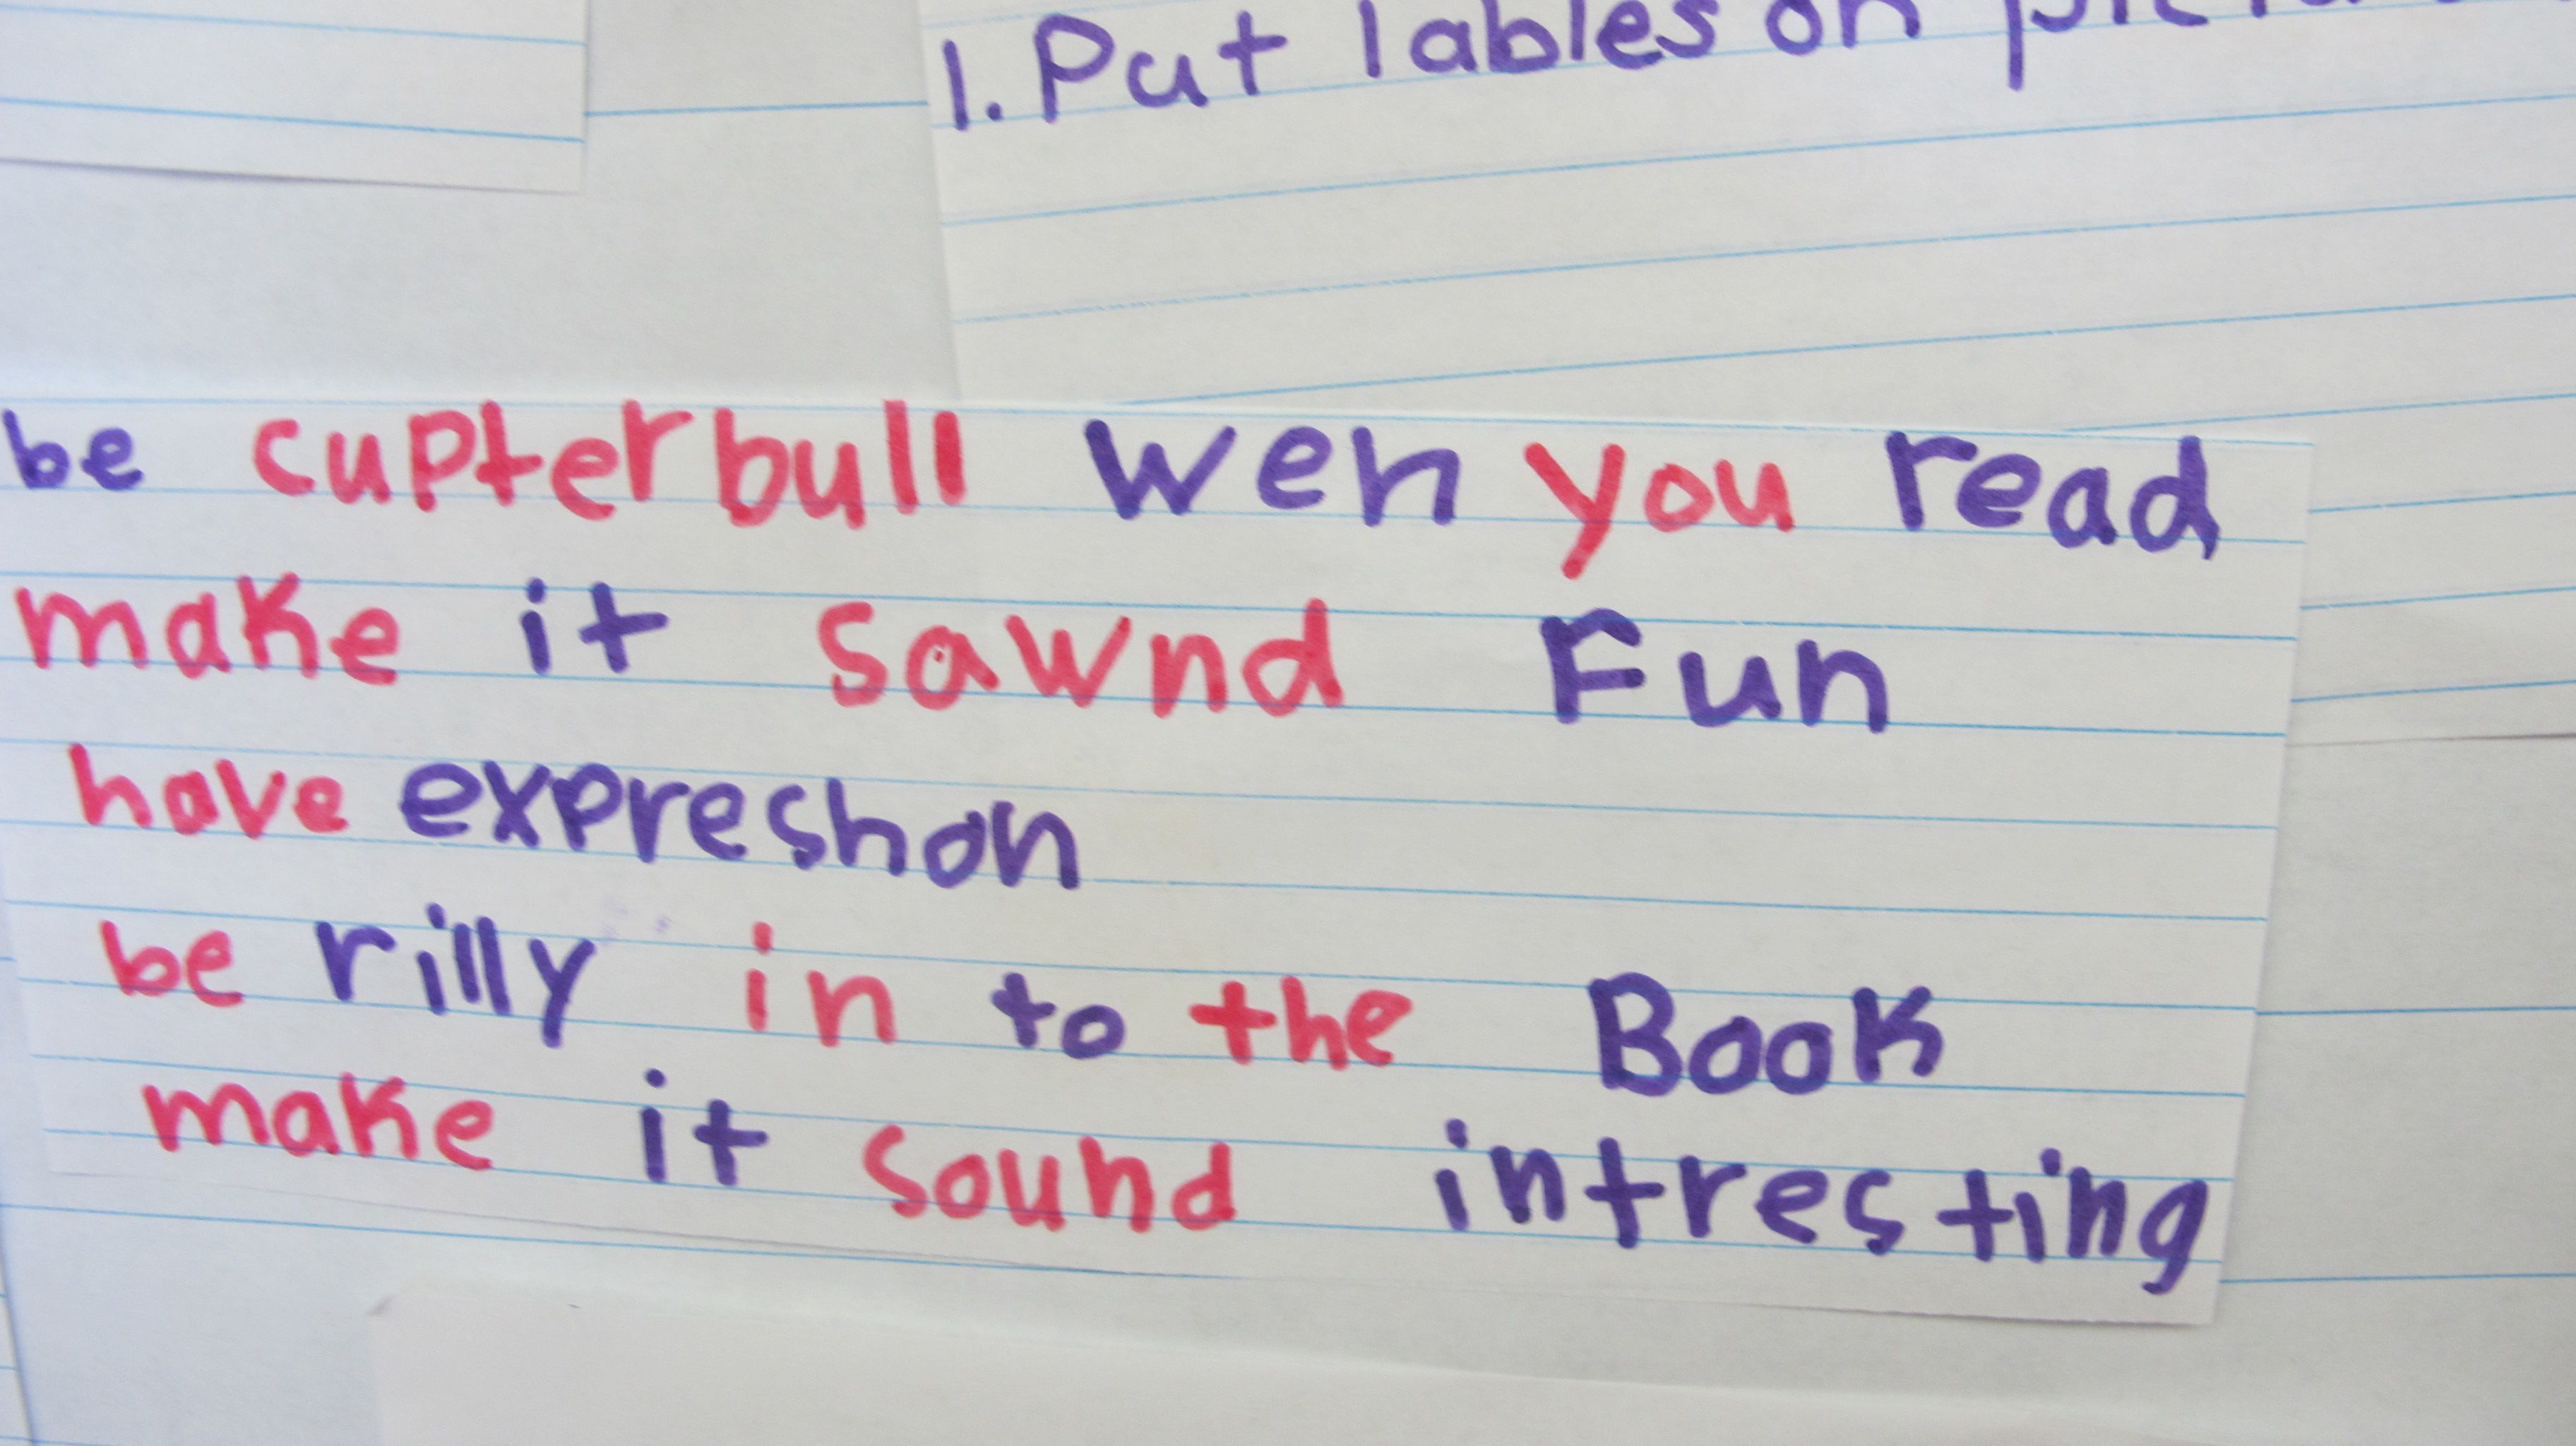 1. Put lables on
be cupterbull wen you read
make it sawnd Fun
have expreshon
be rilly in to the Book
make it sound intresting